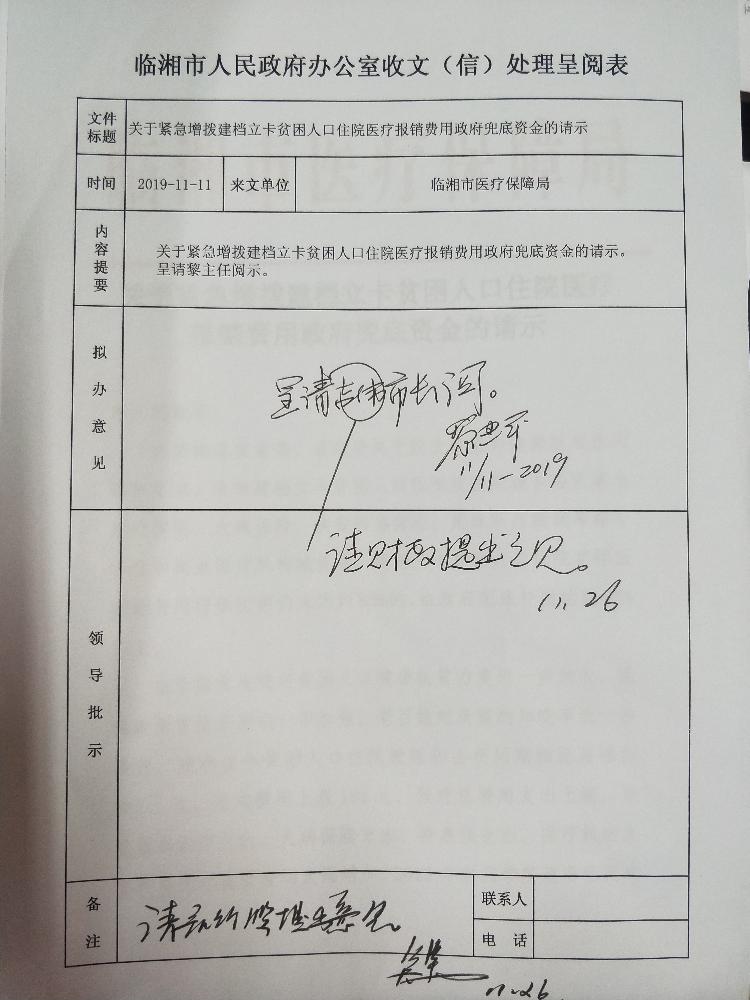 临湘市人民政府办公室收文（信）处理呈阅表
文件标题
关于紧急增拨建档立卡贫困人口住院医疗报销费用政府兜底资金的请示
时间 2019-11-11 来文单位 临湘市医疗保障局
内容提要
关于紧急增拨建档立卡贫困人口住院医疗报销费用政府兜底资金的请示。
呈请黎主任阅示。
拟办意见
呈请志伟市长阅。
11/11-2019
领导批示
请财政提出意见。
11.26
备注
联系人
电话
11.26